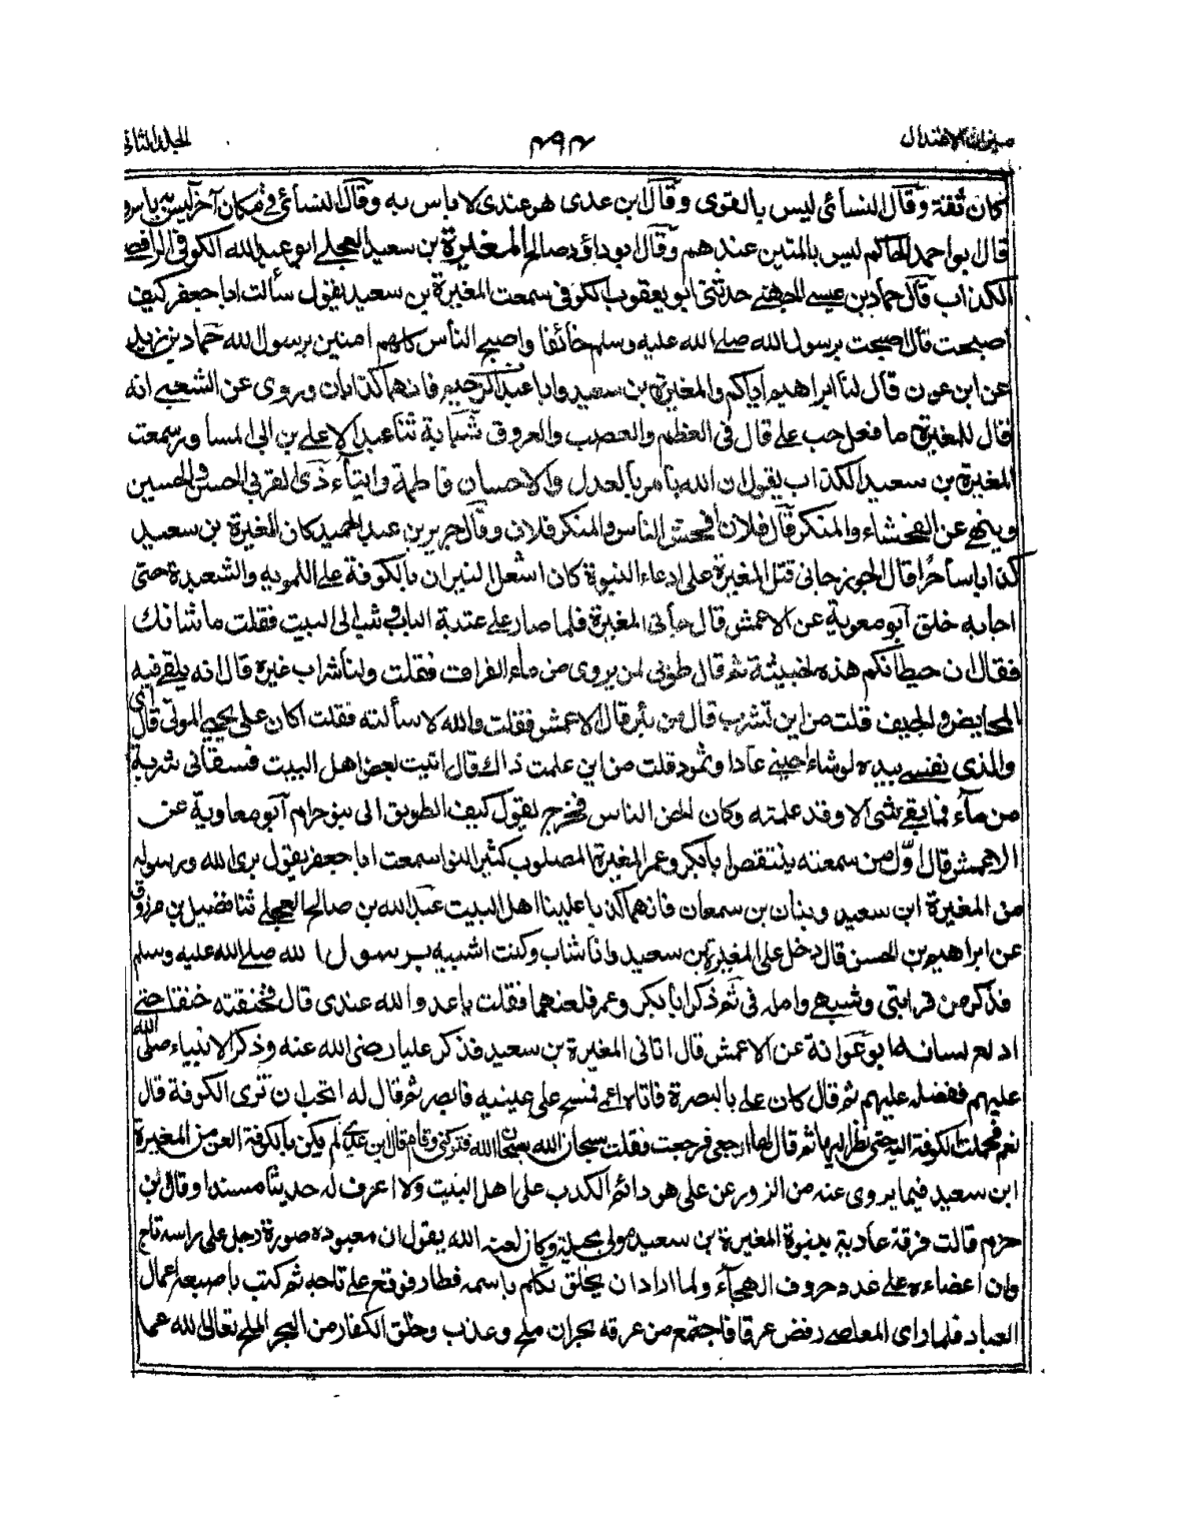 ميزان الاعتدال ۴۹۴ الجلد الثانى
كان ثقة وقال النسائى ليس بالقوى وقال ابن عدى هو عندى لا باس به وقال النسائى فى مكان آخر ليس به باس و
قال ابو احمد الحاكم ليس بالمتين عندهم وقال ابو داؤد صالح المغيرة بن سعيد العجلے ابو عبد الله الكوفى الرافضے
الكذاب قال حماد بن عيسے الجهنے حدثنى ابو يعقوب الكوفى سمعت المغيرة بن سعيد يقول سألت ابا جعفر كيف
اصبحت قال اصبحت برسول الله صلے الله عليه وسلم خائفا واصبح الناس كلهم امنين برسول الله حماد بن زيد
عن ابن عون قال لنا ابراهيم اياكم والمغيرة بن سعيد وابا عبد الرحيم فانهما كذابان وروى عن الشعبے انه
قال للمغيرة ما فعل حب على قال فى العظم والعصب والعروق شبابة ثنا عبد الاعلے بن ابى المساور سمعت
المغيرة بن سعيد الكذاب يقول ان الله يأمر بالعدل والاحسان فاطمة وايتاء ذى القربى الحسن والحسين
وينهے عن الفحشاء والمنكر قال فلان افحش الناس والمنكر فلان وقال جرير بن عبد الحميد كان المغيرة بن سعيد
كذابا ساحرا قال الجوزجانى قتل المغيرة على ادعاء النبوة كان اشعل النيران بالكوفة على التمويه والشعبذة حتى
اجابه خلق ابو معوية عن الاعمش قال جأنى المغيرة فلما صار على عتبة الباب وثب الى البيت فقلت ما شانك
فقال ان حيطانكم هذه لخبيثة ثم قال طوبى لمن يروى من ماء الفرات فقلت ولنا شراب غيره قال انه يلقے فيه
المحايض والجيف قلت من اين تشرب قال من بئر قال الاعمش فقلت والله لاسألنه فقلت اكان على يحيى الموتى قال اى
والذى نفسے بيده لو شاء احيىٰ عادا وثمود قلت من اين علمت ذاك قال اتيت بعض اهل البيت فسقانى شربة
من مآء فما بقے شئ الا وقد علمته وكان الحن الناس فخرج يقول كيف الطريق الى بنو حرام ابو معاوية عن
الاعمش قال اول من سمعته ينتقص ابا بكر وعمر المغيرة المصلوب كثير النوا سمعت ابا جعفر يقول برئ الله ورسوله
من المغيرة ابن سعيد وبنان بن سمعان فانهما كذبا علينا اهل البيت عبد الله بن صالح العجلے ثنا فضيل بن مرزوق
عن ابراهيم بن الحسن قال دخل على المغيرة بن سعيد وانا شاب وكنت اشبه برسول الله صلے الله عليه وسلم
فذكر من قرابتى وشبهے وامله فى ثم ذكر ابا بكر وعمر فلعنهما فقلت يا عدو الله عندى قال فخنقته خنقا حتے
ادلع لسانه ابو عوانة عن الاعمش قال اتانى المغيرة بن سعيد فذكر عليا رضى الله عنه وذكر الانبياء صلى الله
عليهم ففضله عليهم ثم قال كان على بالبصرة فاتاه اعمے فمسح على عينيه فابصر ثم قال له اتحب ان ترى الكوفة قال
نعم فحملت الكوفة اليه حتى نظر اليها ثم قال لها ارجعى فرجعت فقلت سبحان الله سبحان الله فتركنى وقام قال ابن عدى لم يكن بالكوفة العن من المغيرة
ابن سعيد فيما يروى عنه من الزور عن على هو دائم الكذب على اهل البيت ولا اعرف له حديثا مسندا وقال ابن
حزم قالت فرقة عادية بنبوة المغيرة بن سعيد مولى بجيلة وكان لعنه الله يقول ان معبوده صورة رجل على راسه تاج
وان اعضاءه على عدد حروف الهجآء ولما اراد ان يخلق تكلم باسمه فطار فوقع على تاجه ثم كتب باصبعه اعمال
العباد فلما راى المعاصے رفض عرقا فاجتمع من عرقه بحران ملح وعذب وخلق الكفار من البحر الملح تعالى الله عما